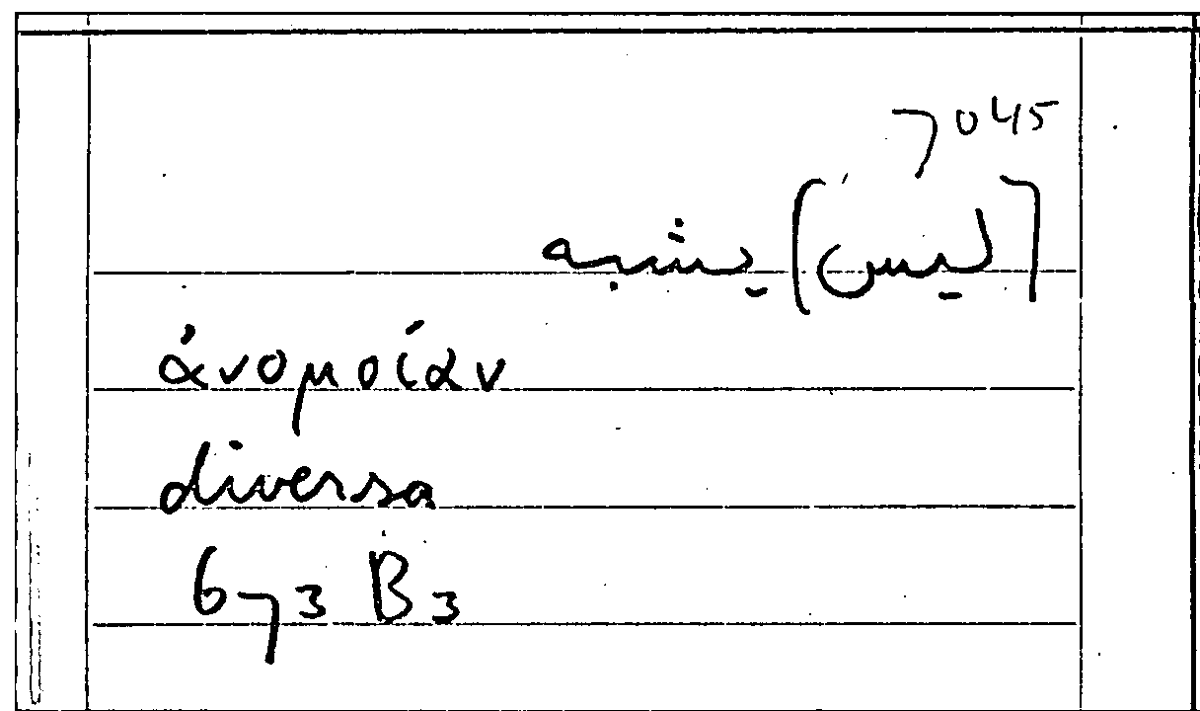 7045
[ليس) يشبه
ἀνομοίαν
diversa
673 B3